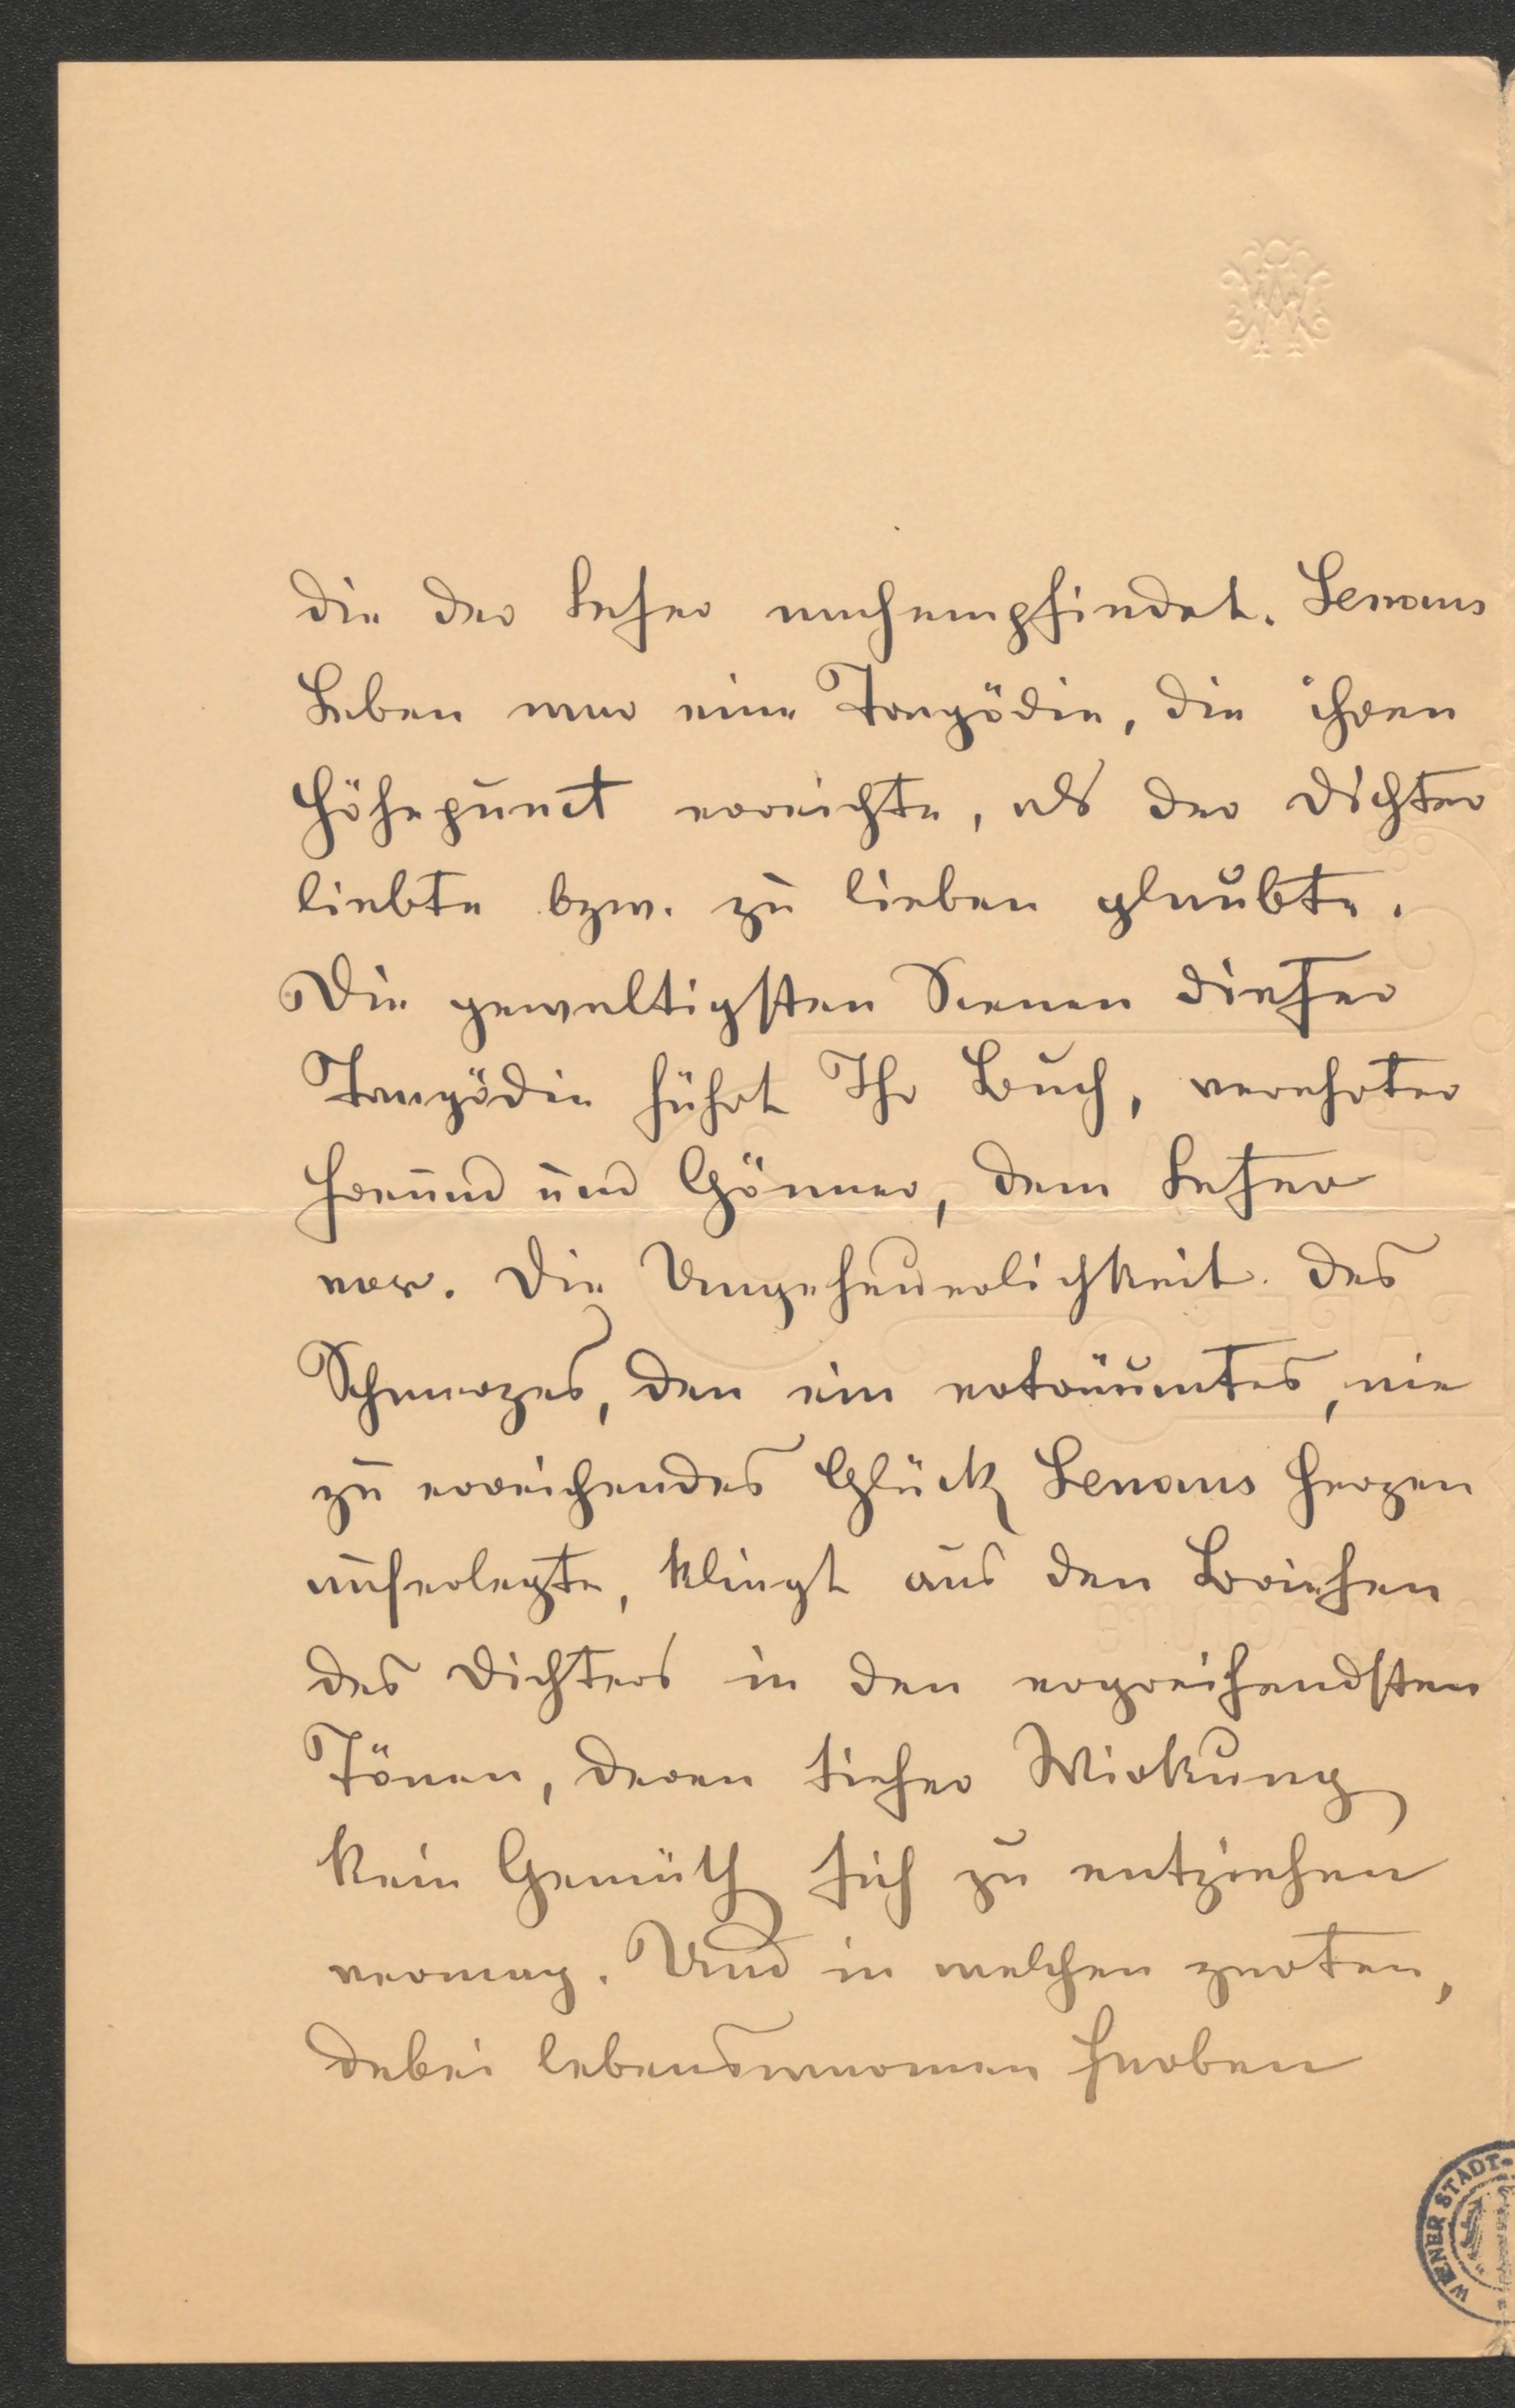 die der Leser nachempfindet. Lenaus
Leben war eine Tragödie, die ihren
Höhepunct erreichte, als der Dichter
liebte bzw. zu lieben glaubte.
Die gewaltigsten Scenen dieser
Tragödie führt Ihr Buch, verehrter
Freund und Gönner, dem Leser
vor. Die Ungeheuerlichkeit des
Schmerzes, den ein erträumtes, nie
zu erreichendes Glück Lenaus Herzen
auferlegte, klingt aus den Briefen
des Dichters in den ergreifendsten
Tönen, deren tiefer Wirkung
kein Gemüth sich zu entziehen
vermag. Und in welchen zarten,
dabei lebenswarmen Farben
WIENER STADT-